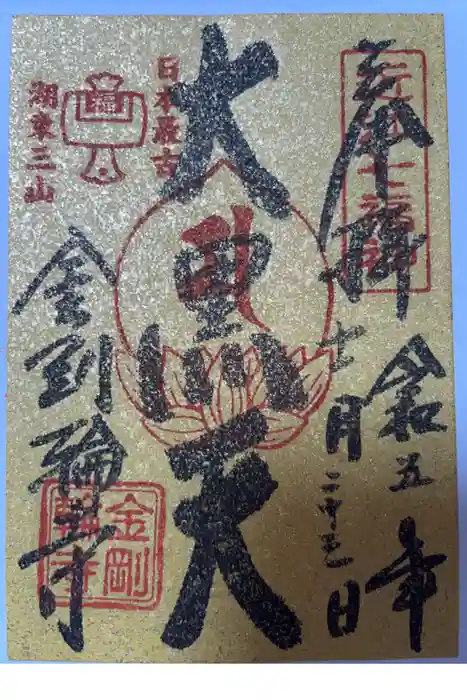 奉拝
近江七福神
令和五年
十一月二十三日
大黒天
日本最古
湖東三山
金剛輪寺
金剛
輪寺